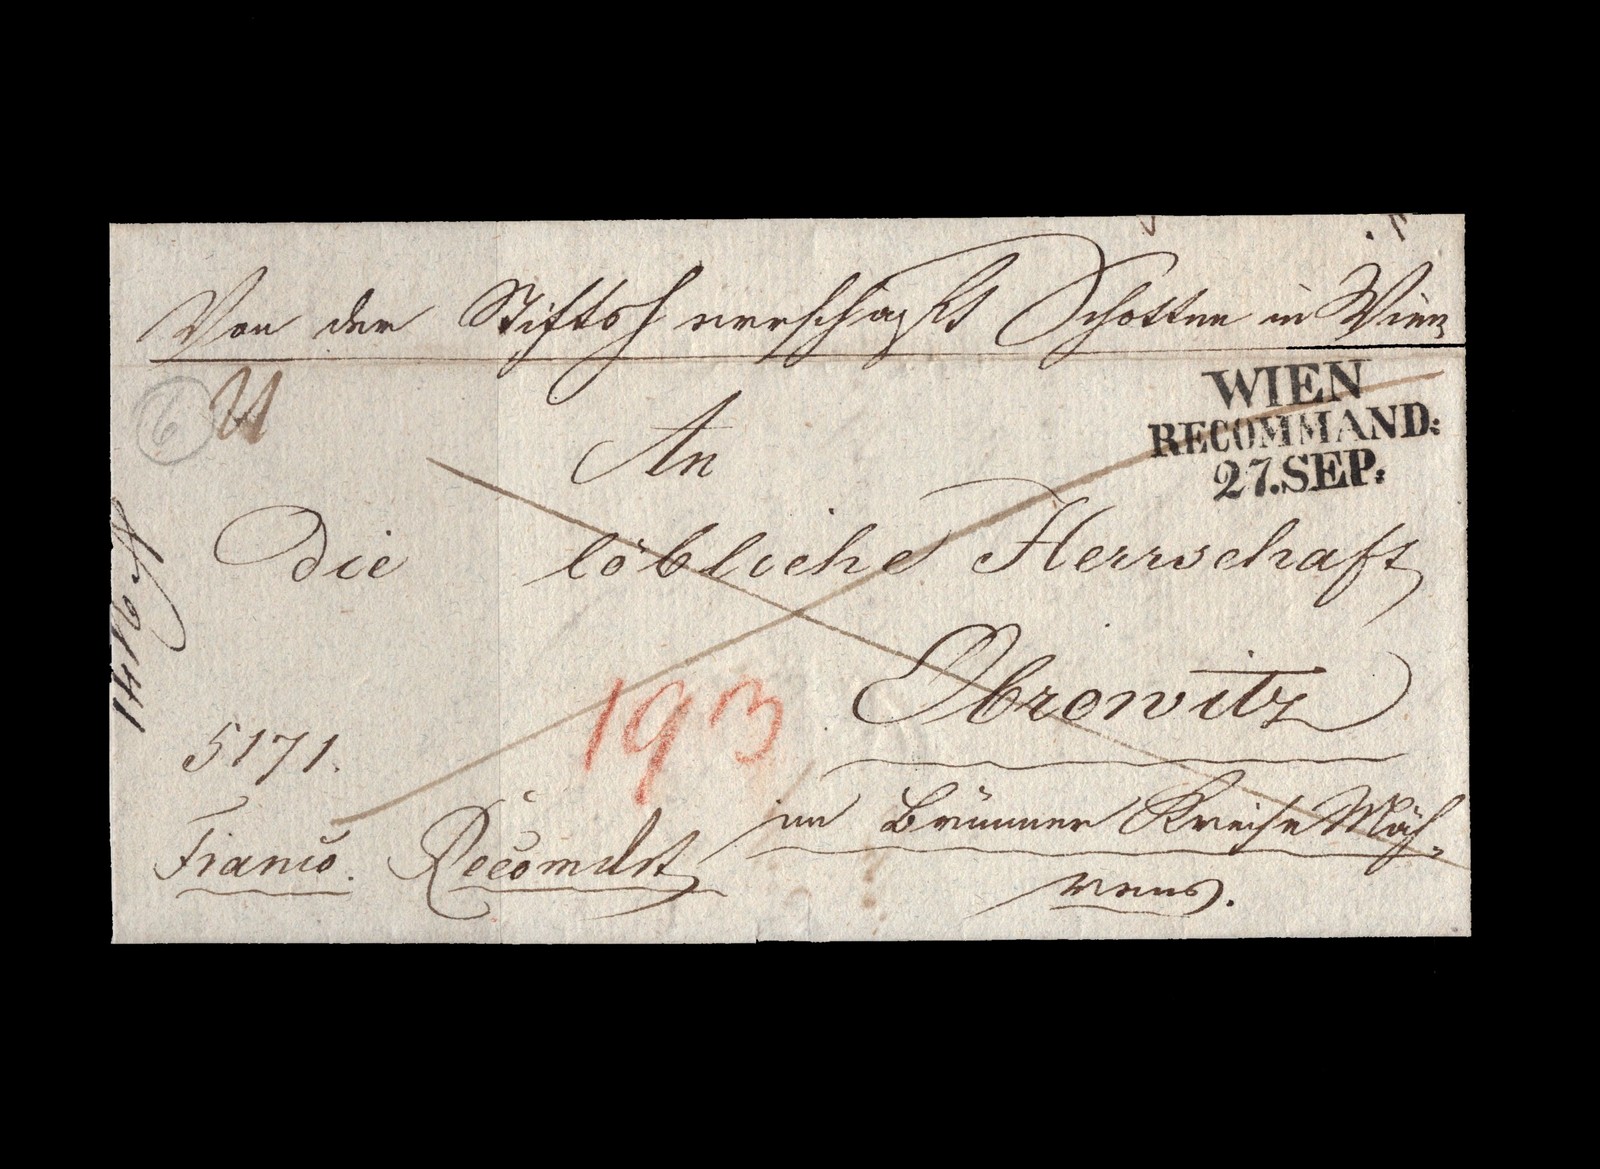 Von der Stiftsherrschaft Schotten in Wien
WIEN
RECOMMAND:
27.SEP:
6
An
Die löbliche Herrschaft
Obrowitz
193
5171.
im Brünner Kreise Mäh-
Franco. Recomdrt
rens.